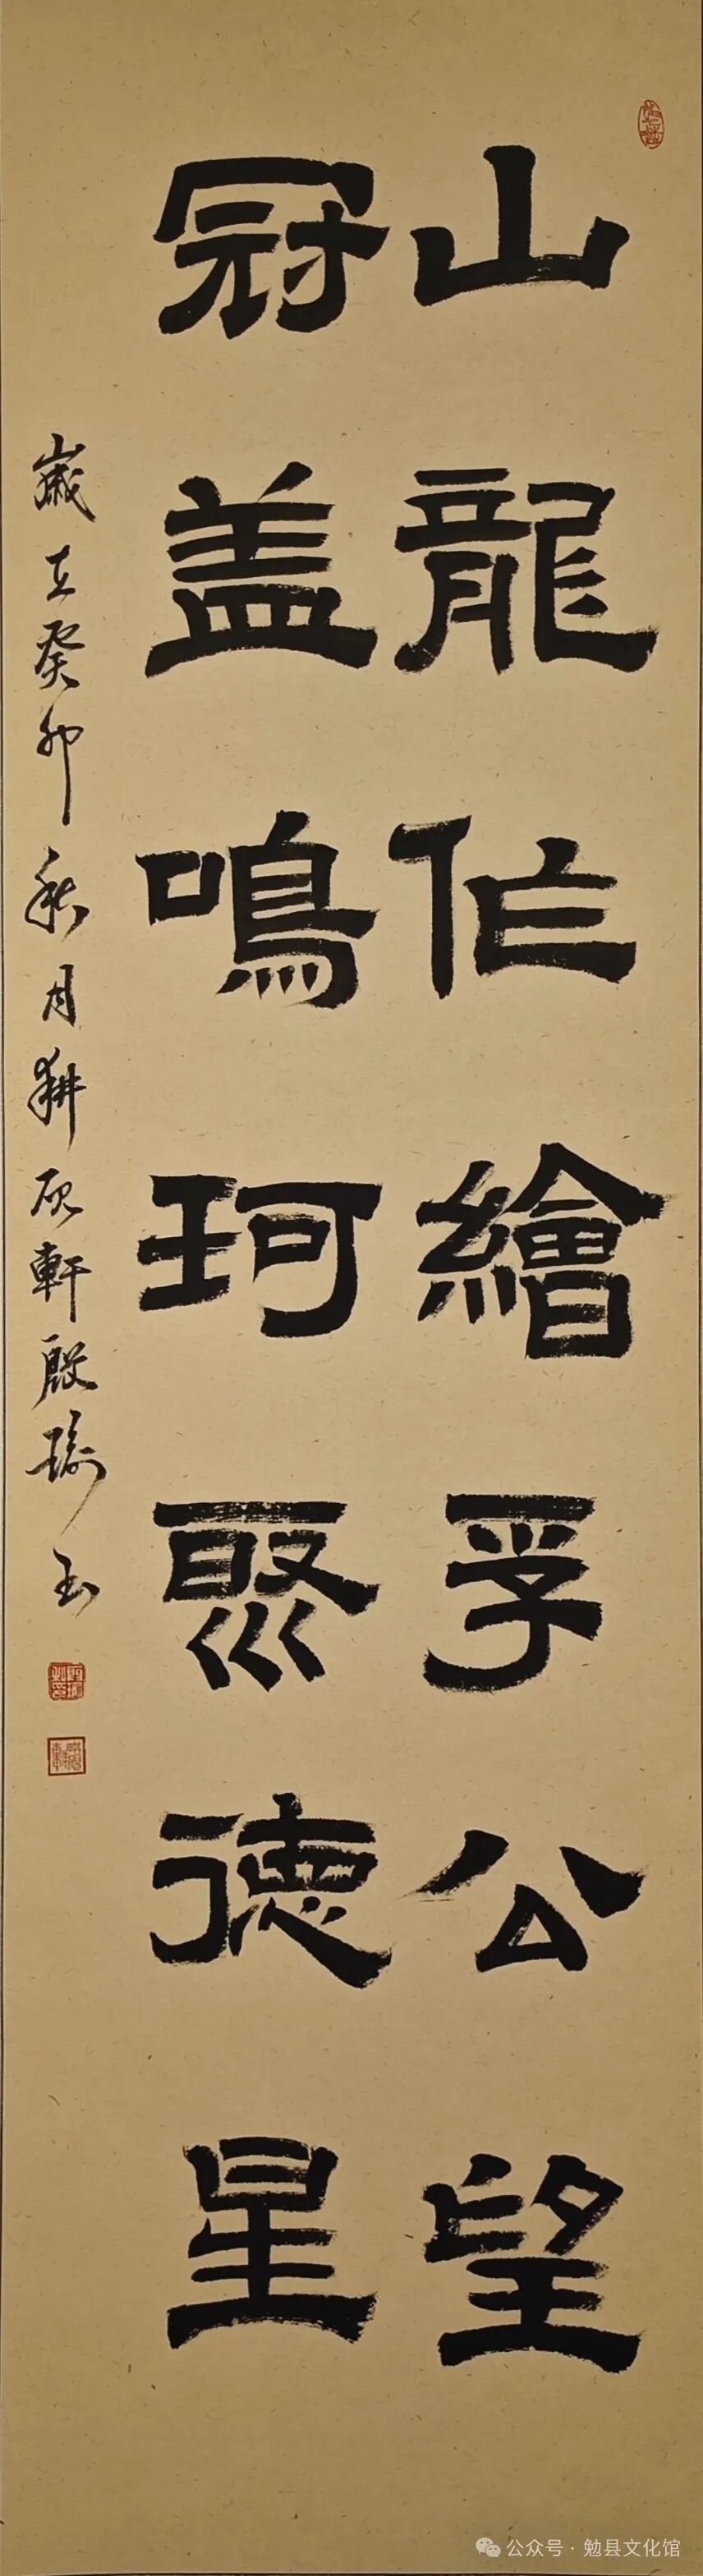 山龍作繪孚公望
冠盖鳴珂聚德星
歲在癸卯秋月耕石軒殷瑜玉
公众号·勉县文化馆